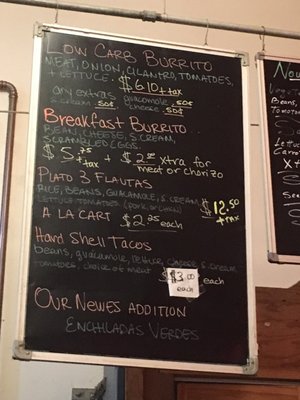 Low Carb Burrito
MEAT, ONION, CILANTRO, TOMATOES,
+ LETTUCE. $6.10 + tax
any extras guacamole cheese
s.cream .50¢ .50¢ .50¢
Breakfast Burrito
BEAN, CHEESE, S.CREAM,
SCRAMBLED EGGS.
$5.75 + tax + $2.50 xtra for
meat or chorizo
Plato 3 Flautas
RICE, BEANS, GUACAMOLE, S.CREAM
LETTUCE TOMATOES (pork or chick) $12.50
+ tax
A LA CART $2.25 each
Hard Shell Tacos
beans, guacamole, lettuce, cheese, s.cream
tomatoes, choice of meat $3.00 each
each
Our Newes Addition
Enchiladas Verdes
New
Tomato
Lettuc
Carrot